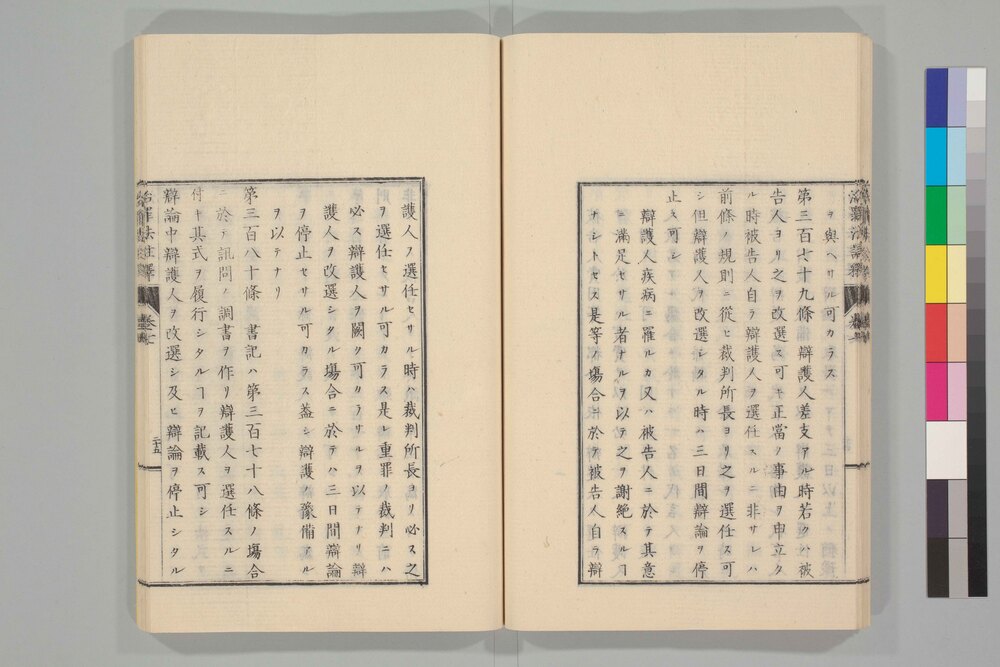 ヲ與ヘサル可カラス
第三百七十九條 辯護人差支アル時若クハ被
告人ヨリ之ヲ改選ス可キ正當ノ事由ヲ申立タ
ル時被告人自ラ辯護人ヲ選任スルニ非サレハ
前條ノ規則ニ從ヒ裁判所長ヨリ之ヲ選任ス可
シ但辯護人ヲ改選シタル時ハ三日間辯論ヲ停
止ス可シ
辯護人疾病ニ罹ルカ又ハ被告人ニ於テ其意
ニ滿足セサル者ナルヲ以テ之ヲ謝絶スルヿ
ナシトセス是等ノ塲合ニ於テ被告人自ラ辯
護人ヲ選任セサル時ハ裁判所長ヨリ必ス之
ヲ選任セサル可カラス是レ重罪ノ裁判ニハ
必ス辯護人ヲ闕ク可カラサルヲ以テナリ辯
護人ヲ改選シタル塲合ニ於テハ三日間辯論
ヲ停止セサル可カラス蓋シ辯護ノ豫備アル
ヲ以テナリ
第三百八十條 書記ハ第三百七十八條ノ塲合
ニ於テ訊問ノ調書ヲ作リ辯護人ヲ選任スルニ
付キ其式ヲ履行シタルヿヲ記載ス可シ
辯論中辯護人ヲ改選シ及ヒ辯論ヲ停止シタル
治罪法註釋 卷七
二十五